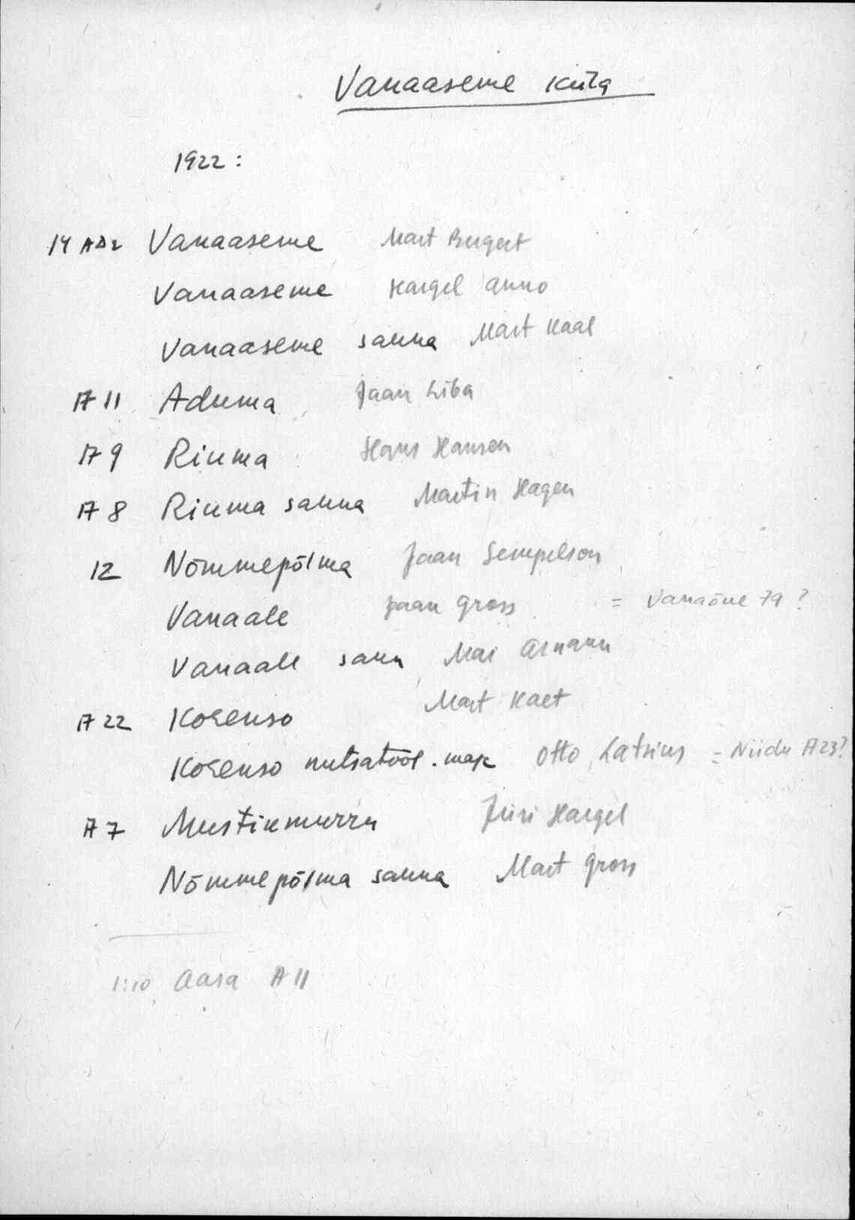 Vanaaseme küla
1922:
14 Vanaaseme Mart Bergert
Vanaaseme Hargel Anno
Vanaaseme sauna Mart Kaal
A 11 Aduma Jaan Liba
A 9 Riuma Hans Hansen
A 8 Riuma sauna Martin Hagen
12 Nõmmepõlma Jaan Sempelson
Vanaale Jaan Gross = Vanaõue 79 ?
Vanaale saun Mai
A 22 Korenso Mart Kaet
Korenso Otto = Niidu A23?
A 7 Mustinurru Jüri Hargel
Nõmmepõlma sauna Mart Gross
1:10 Aasa A 11